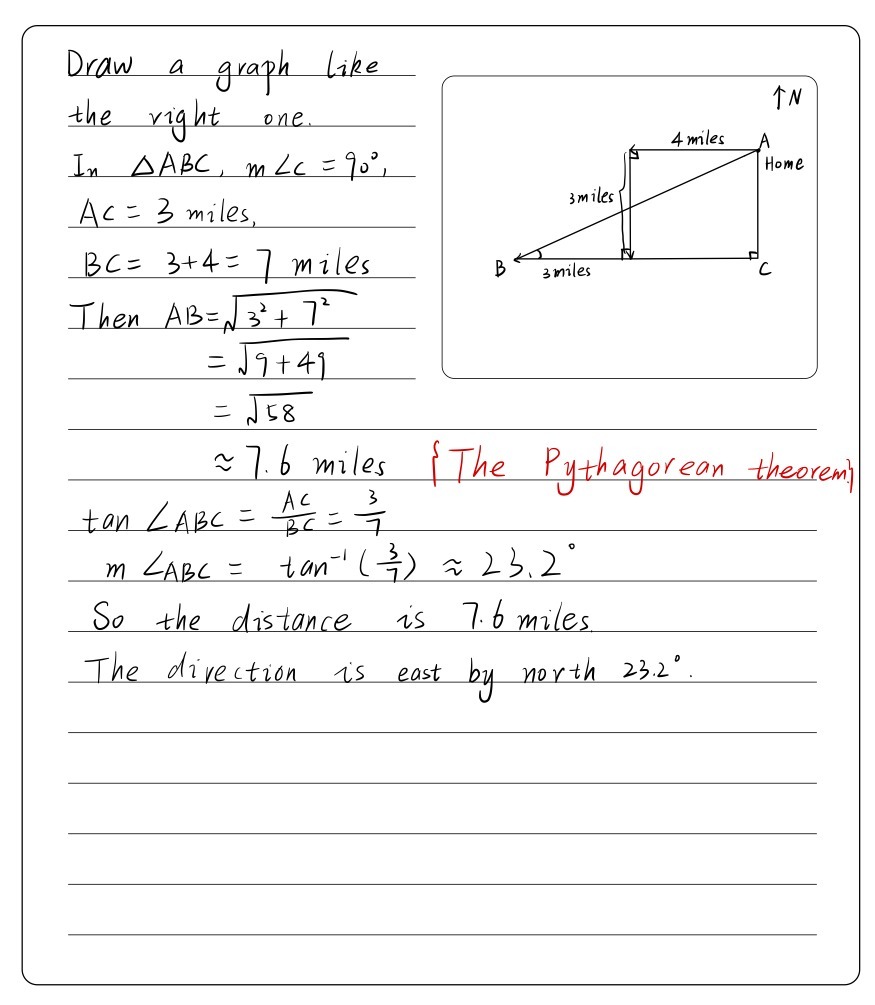 Draw a graph like
the right one.
In △ABC, m∠C = 90°,
AC = 3 miles,
BC = 3+4 = 7 miles
Then AB = √(3² + 7²)
= √(9+49)
= √58
≈ 7.6 miles {The Pythagorean theorem}
tan ∠ABC = AC/BC = 3/7
m ∠ABC = tan⁻¹(3/7) ≈ 23.2°
So the distance is 7.6 miles.
The direction is east by north 23.2°.
↑N
4 miles A
Home
3 miles
B 3 miles C